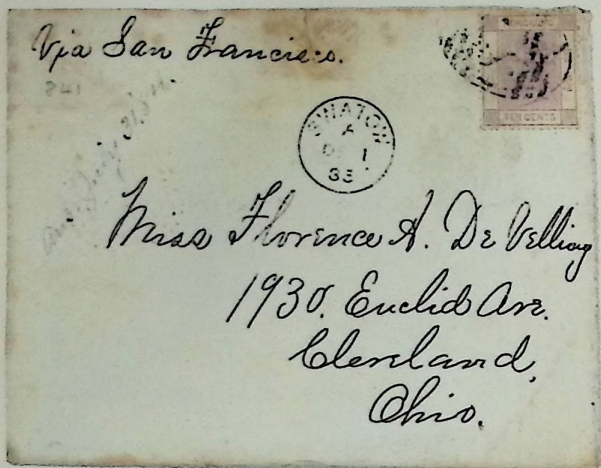 Via San Francisco.
841
SWATOW
A
DE 1
83
TEN CENTS
Miss Florence A. De Velling
1930. Euclid Ave.
Cleveland,
Ohio.